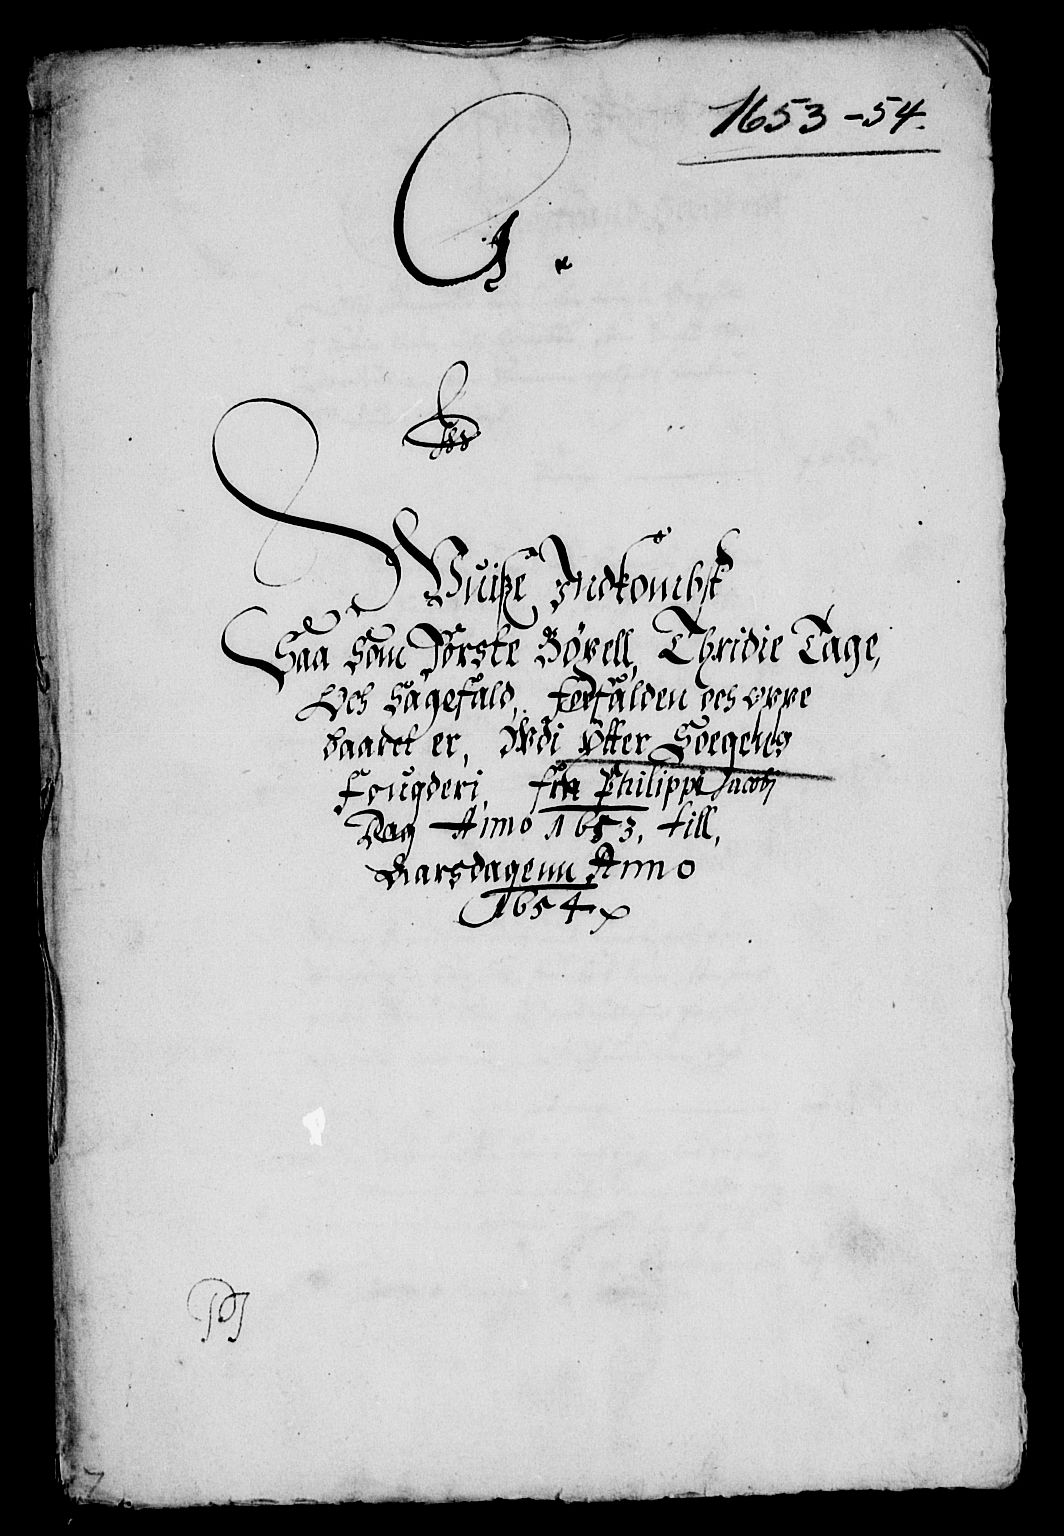 1653-54.
G.
Wuiße Indkombst
Saa som Första Böxell, Thridie Tage,
Och Sagefald, feefalden och oppe
baaret er, Wdi Ytter Soegens
Fougderi, fra Philippi Jacobj
Dag Anno 1653, till,
Aarsdagenn Anno
1654